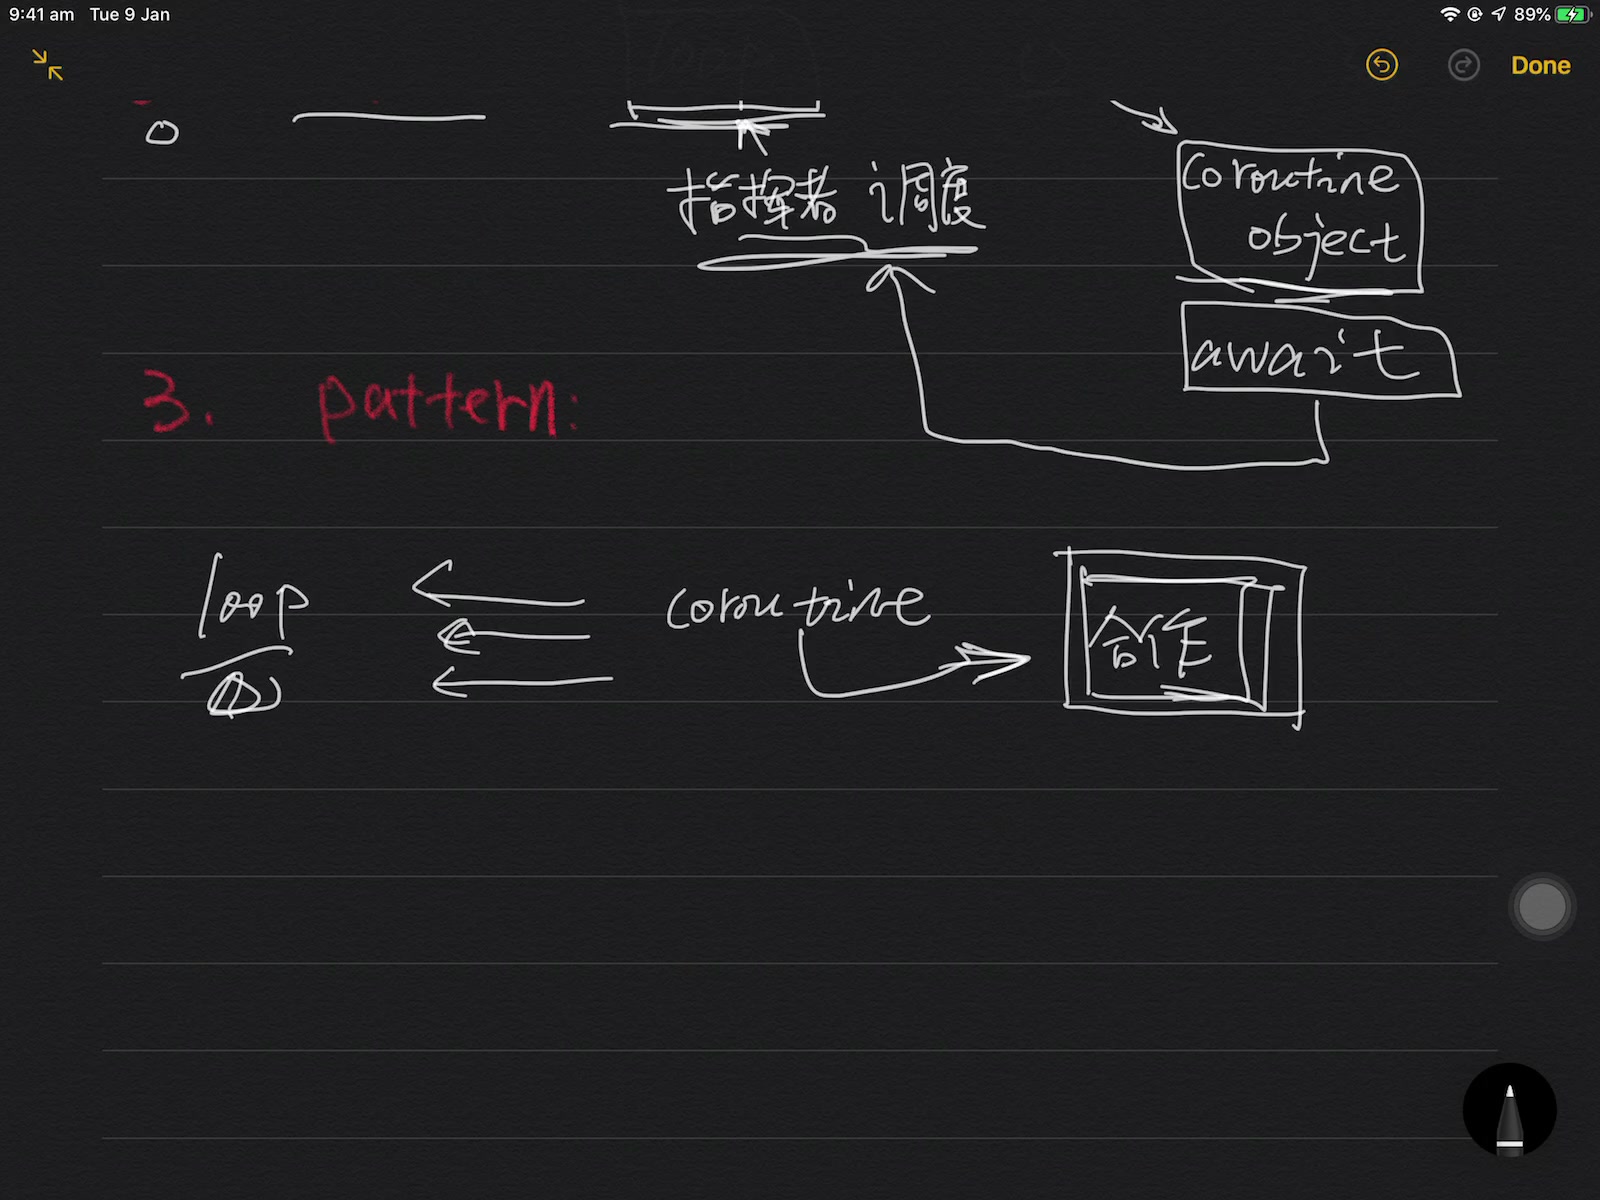 9:41 am Tue 9 Jan 89%
Done
指挥者 调度
coroutine
object
await
3. pattern:
loop coroutine 合作